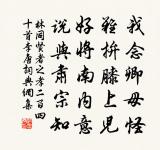 我念卿毋怪
難拚膝上兒
好將南內意
說與肅宗知
林同賢者之孝二百四
十首李唐詞典網集